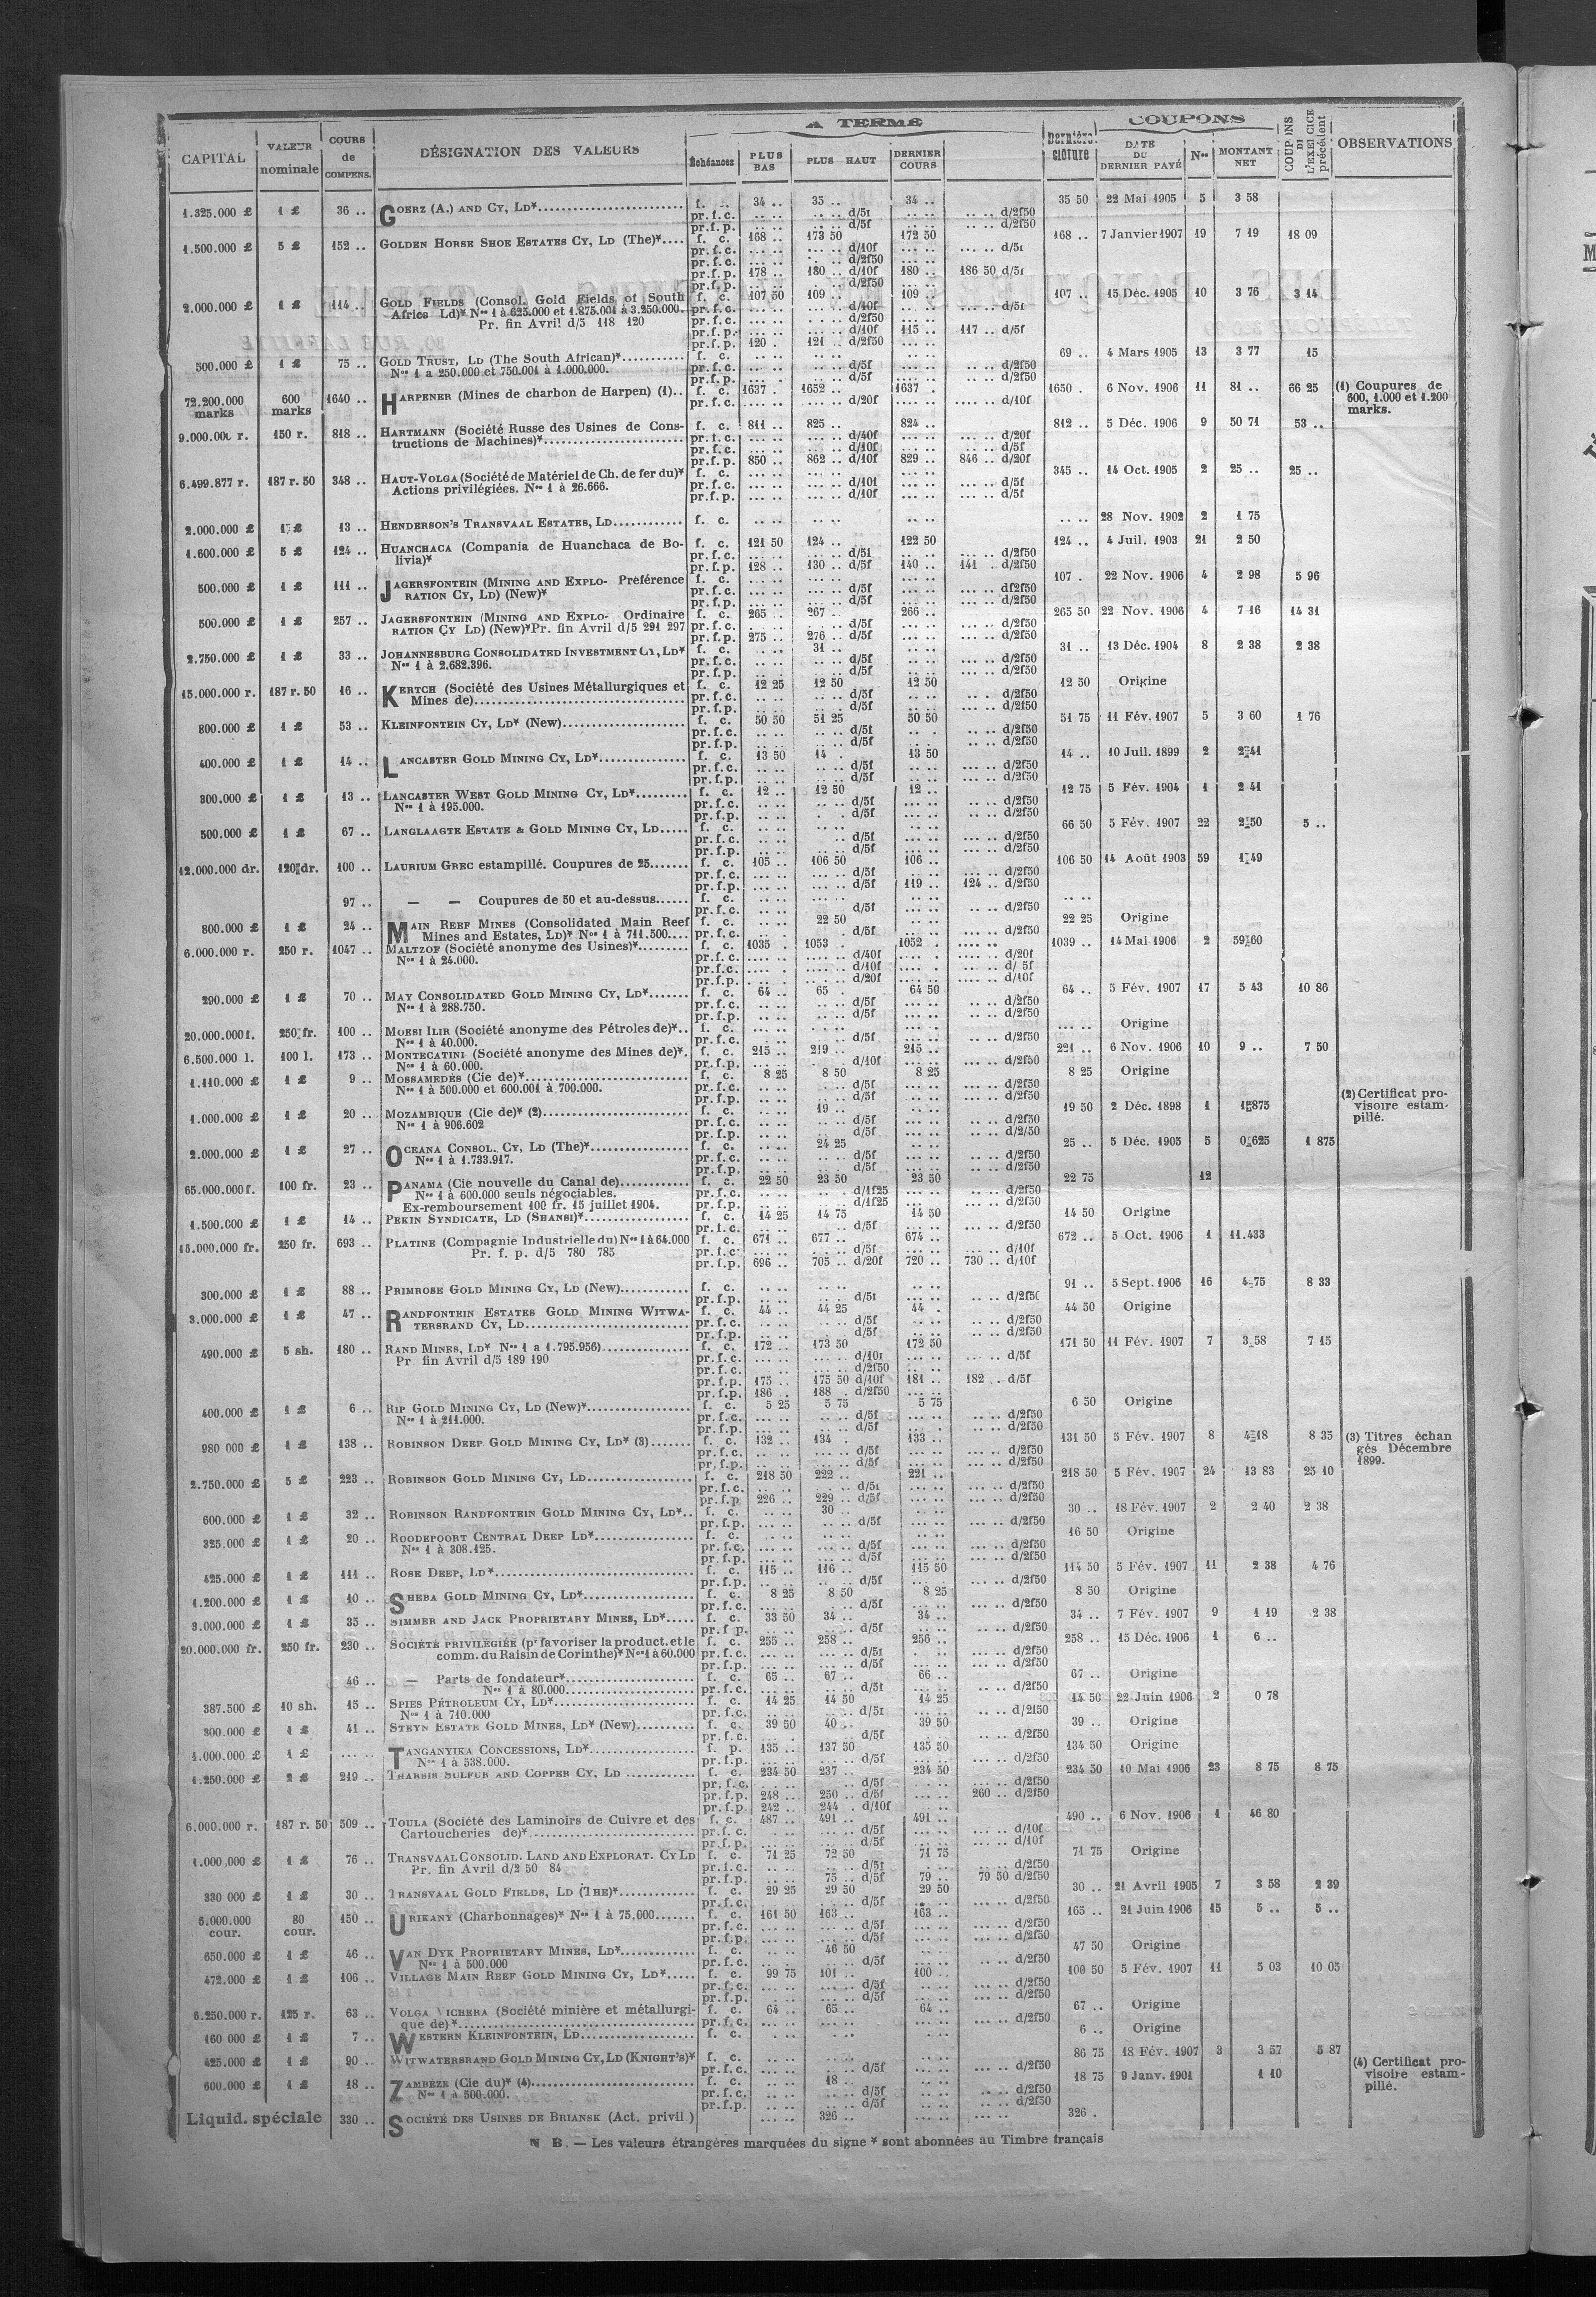 A TERME
COUPONS
CAPITAL
VALEUR nominale
COURS de COMPENS.
DÉSIGNATION DES VALEURS
Échéances
PLUS BAS
PLUS HAUT
DERNIER COURS
Dernière clôture
DATE DU DERNIER PAYÉ
Nos
MONTANT NET
COUPONS DE L'EXERCICE précédent
OBSERVATIONS
1.325.000 £ 1 £ 36 .. GOERZ (A.) AND CY, LD* f. .. 34 .. 35 .. 34 .. 35 50 22 Mai 1905 5 3 58
pr.f.c. .. .. .. .. d/5f .. .. .. .. d/2f50
pr.f.p. .. .. .. .. d/5f .. .. .. .. d/2f50
1.500.000 £ 5 £ 152 .. GOLDEN HORSE SHOE ESTATES CY, LD (The)* f. c. 168 .. 173 50 172 50 168 .. 7 Janvier 1907 19 7 19 18 09
pr.f.c. ... .. ... .. d/10f ... .. ... .. d/5f
pr.f.c. d/2f50
pr.f.p. 178 .. 180 .. d/10f 180 .. 186 50 d/5f
pr.f.p. d/2f50
2.000.000 £ 1 £ 114 .. GOLD FIELDS (Consol. Gold Fields of South f. c. 107 50 109 .. 109 .. 107 .. 15 Déc. 1905 10 3 76 3 14
Africa Ld)* Nos 1 à 625.000 et 1.875.001 à 3.250.000. pr.f.c. d/10f d/5f
Pr. fin Avril d/5 118 120 pr.f.c. d/2f50
pr.f.p. d/10f 115 .. 117 .. d/5f
pr.f.p. 120 . 121 .. d/2f50
500.000 £ 1 £ 75 .. GOLD TRUST, LD (The South African)* f. c. 69 .. 4 Mars 1905 13 3 77 15
Nos 1 a 250.000 et 750.001 à 1.000.000. pr.f.c. d/5f d/2f50
pr.f.p. d/5f d/2f50
72.200.000 marks 600 marks 1640 .. HARPENER (Mines de charbon de Harpen) (1).. f. c. 1637 . 1652 .. 1637 . 1650 . 6 Nov. 1906 11 81 .. 66 25 (1) Coupures de 600, 1.000 et 1.200 marks.
pr.f.c. d/20f d/10f
9.000.000 r. 150 r. 818 .. HARTMANN (Société Russe des Usines de Cons- f. c. 811 .. 825 .. 824 .. 812 .. 5 Déc. 1906 9 50 71 53 ..
tructions de Machines)* pr.f.c. d/40f d/20f
pr.f.c. d/10f d/5f
pr.f.p. 850 .. 862 .. d/10f 829 .. 846 .. d/20f
6.499.877 r. 187 r. 50 348 .. HAUT-VOLGA (Société de Matériel de Ch. de fer du)* f. c. 345 .. 14 Oct. 1905 2 25 .. 25 ..
Actions privilégiées. Nos 1 à 26.666. pr.f.c. d/10f d/5f
pr.f.p. d/10f d/5f
2.000.000 £ 1 £ 13 .. HENDERSON'S TRANSVAAL ESTATES, LD f. c. .. .. 28 Nov. 1902 2 1 75
1.600.000 £ 5 £ 124 .. HUANCHACA (Compania de Huanchaca de Bo- f. c. 121 50 124 .. 122 50 124 .. 4 Juil. 1903 21 2 50
livia)* pr.f.c. d/5f d/2f50
pr.f.p. 128 .. 130 .. d/5f 140 .. 141 . d/2f50
500.000 £ 1 £ 111 .. JAGERSFONTEIN (MINING AND EXPLO- Préférence f. c. 107 . 22 Nov. 1906 4 2 98 5 96
RATION CY, LD) (New)* pr.f.c. d/5f d/2f50
pr.f.p. d/5f d/2f50
500.000 £ 1 £ 257 .. JAGERSFONTEIN (MINING AND EXPLO- Ordinaire f. c. 265 .. 267 .. 266 .. 265 50 22 Nov. 1906 4 7 16 14 31
RATION CY LD) (New)* Pr. fin Avril d/5 291 297 pr.f.c. d/5f d/2f50
pr.f.p. 275 .. 276 .. d/5f d/2f50
2.750.000 £ 1 £ 33 .. JOHANNESBURG CONSOLIDATED INVESTMENT CY, LD* f. c. 31 .. 31 .. 13 Déc. 1904 8 2 38 2 38
Nos 1 à 2.682.396. pr.f.c. d/5f d/2f50
pr.f.p. d/5f d/2f50
15.000.000 r. 187 r. 50 16 .. KERTCH (Société des Usines Métallurgiques et f. c. 12 25 12 50 12 50 12 50 Origine
Mines de) pr.f.c. d/5f d/2f50
pr.f.p. d/5f d/2f50
800.000 £ 1 £ 53 .. KLEINFONTEIN CY, LD* (New) f. c. 50 50 51 25 50 50 51 75 11 Fév. 1907 5 3 60 1 76
pr.f.c. d/5f d/2f50
pr.f.p. d/5f d/2f50
400.000 £ 1 £ 14 .. LANCASTER GOLD MINING CY, LD* f. c. 13 50 14 . 13 50 14 .. 10 Juil. 1899 2 2 41
pr.f.c. d/5f d/2f50
pr.f.p. d/5f d/2f50
300.000 £ 1 £ 13 .. LANCASTER WEST GOLD MINING CY, LD* f. c. 12 .. 12 50 12 .. 12 75 5 Fév. 1904 1 2 41
Nos 1 à 195.000. pr.f.c. d/5f d/2f50
pr.f.p. d/5f d/2f50
500.000 £ 1 £ 67 .. LANGLAAGTE ESTATE & GOLD MINING CY, LD f. c. 66 50 5 Fév. 1907 22 2 50 5 ..
pr.f.c. d/5f d/2f50
pr.f.p. d/5f d/2f50
12.000.000 dr. 120 dr. 100 .. LAURIUM GREC estampillé. Coupures de 25 f. c. 105 .. 106 50 106 .. 106 50 14 Août 1903 59 1 49
pr.f.c. d/5f d/2f50
pr.f.p. d/5f 119 .. 124 .. d/2f50
97 .. — — Coupures de 50 et au-dessus f. c. .. ..
pr.f.c. d/5f d/2f50
800.000 £ 1 £ 24 .. MAIN REEF MINES (Consolidated Main Reef f. c. 22 50 22 25 Origine
Mines and Estates, LD)* Nos 1 à 711.500 pr.f.c. d/5f d/2f50
6.000.000 r. 250 r. 1047 .. MALTZOF (Société anonyme des Usines)* f. c. 1035 . 1053 . 1052 . 1039 .. 14 Mai 1906 2 59 60
Nos 1 à 24.000. pr.f.c. d/40f d/20f
pr.f.c. d/10f d/ 5f
pr.f.p. d/20f d/10f
290.000 £ 1 £ 70 .. MAY CONSOLIDATED GOLD MINING CY, LD* f. c. 64 .. 65 . 64 50 64 .. 5 Fév. 1907 17 5 43 10 86
Nos 1 à 288.750. pr.f.c. d/5f d/2f50
pr.f.p. d/5f d/2f50
20.000.000 f. 250 fr. 100 .. MOESI ILIR (Société anonyme des Pétroles de)* f. c. Origine
Nos 1 à 40.000. pr.f.c. d/5f d/2f50
6.500.000 l. 100 l. 173 .. MONTECATINI (Société anonyme des Mines de)* f. c. 215 .. 219 .. 215 .. 221 .. 6 Nov. 1906 10 9 .. 7 50
Nos 1 à 60.000. pr.f.p. d/10f d/2f50
1.110.000 £ 1 £ 9 .. MOSSAMEDÈS (Cie de)* f. c. 8 25 8 50 8 25 8 25 Origine
Nos 1 à 500.000 et 600.001 à 700.000. pr.f.c. d/5f d/2f50
pr.f.p. d/5f d/2f50
1.000.000 £ 1 £ 20 .. MOZAMBIQUE (Cie de)* (2) f. c. 19 .. 19 50 2 Déc. 1898 1 1 875 (2) Certificat provisoire estampillé.
Nos 1 à 906.602 pr.f.c. d/5f d/2f50
pr.f.p. d/5f d/2/50
2.000.000 £ 1 £ 27 .. OCEANA CONSOL. CY, LD (The)* f. c. 24 25 25 .. 5 Déc. 1905 5 0 625 1 875
Nos 1 à 1.733.917. pr.f.c. d/5f d/2f50
pr.f.p. d/5f d/2f50
65.000.000 f. 100 fr. 23 .. PANAMA (Cie nouvelle du Canal de) f. c. 22 50 23 50 23 50 22 75 12
Nos 1 à 600.000 seuls négociables. pr.f.c. d/1f25 d/2f50
Ex-remboursement 100 fr. 15 juillet 1904. pr.f.p. d/1f25 d/2f50
1.500.000 £ 1 £ 14 .. PEKIN SYNDICATE, LD (SHANSI)* f. c. 14 25 14 75 14 50 14 50 Origine
pr.f.c. d/5f d/2f50
15.000.000 fr. 250 fr. 693 .. PLATINE (Compagnie Industrielle du) Nos 1 à 64.000 f. c. 671 .. 677 .. 674 .. 672 .. 5 Oct. 1906 1 11.433
Pr. f. p. d/5 780 785 pr.f.c. d/5f d/10f
pr.f.p. 696 .. 705 .. d/20f 720 .. 730 .. d/10f
300.000 £ 1 £ 88 .. PRIMROSE GOLD MINING CY, LD (New) f. c. 91 .. 5 Sept. 1906 16 4 75 8 33
pr.f.p. d/5f d/2f50
3.000.000 £ 1 £ 47 .. RANDFONTEIN ESTATES GOLD MINING WITWA- f. c. 44 .. 44 25 44 . 44 50 Origine
TERSRAND CY, LD pr.f.c. d/5f d/2f50
pr.f.p. d/5f d/2f50
490.000 £ 5 sh. 180 .. RAND MINES, LD* Nos 1 a 1.795.956) f. c. 172 .. 173 50 172 50 171 50 11 Fév. 1907 7 3 58 7 15
Pr fin Avril d/5 189 190 pr.f.c. d/10f d/5f
pr.f.c. d/2f50
pr.f.p. 175 .. 175 50 d/10f 181 .. 182 . d/5f
pr.f.p. 186 . 188 . d/2f50
400.000 £ 1 £ 6 .. RIP GOLD MINING CY, LD (New)* f. c. 5 25 5 75 5 75 6 50 Origine
Nos 1 à 211.000. pr.f.c. d/5f d/2f50
pr.f.p. d/5f d/2f50
980 000 £ 1 £ 138 .. ROBINSON DEEP GOLD MINING CY, LD* (3) f. c. 132 .. 134 . 133 .. 131 50 5 Fév. 1907 8 4 18 8 35 (3) Titres échangés Décembre 1899.
pr.f.c. d/5f d/2f50
pr.f.p. d/5f d/2f50
2.750.000 £ 5 £ 223 .. ROBINSON GOLD MINING CY, LD f. c. 218 50 222 .. 221 .. 218 50 5 Fév. 1907 24 13 83 25 10
pr.f.c. d/5f d/2f50
pr.f.p 226 .. 229 .. d/5f d/2f50
600.000 £ 1 £ 32 .. ROBINSON RANDFONTEIN GOLD MINING CY, LD* f. c. 30 .. 30 .. 18 Fév. 1907 2 2 40 2 38
pr.f.p. d/5f d/2f50
325.000 £ 1 £ 20 .. ROODEPOORT CENTRAL DEEP LD* f. c. 16 50 Origine
Nos 1 à 308.125. pr.f.c. d/5f d/2f50
pr.f.p. d/5f d/2f50
425.000 £ 1 £ 111 .. ROSE DEEP, LD* f. c. 115 .. 116 .. 115 50 114 50 5 Fév. 1907 11 2 38 4 76
pr.f.p. d/5f d/2f50
1.200.000 £ 1 £ 10 .. SHEBA GOLD MINING CY, LD* f. c. 8 25 8 50 8 25 8 50 Origine
pr.f.c. d/5f d/2f50
3.000.000 £ 1 £ 35 .. SIMMER AND JACK PROPRIETARY MINES, LD* f. c. 33 50 34 .. 34 .. 34 .. 7 Fév. 1907 9 1 19 2 38
pr.f p. d/5f d/2f50
20.000.000 fr. 250 fr. 230 .. SOCIÉTÉ PRIVILÉGIÉE (pr favoriser la product. et le f. c. 255 .. 258 .. 256 .. 258 .. 15 Déc. 1906 1 6 ..
comm. du Raisin de Corinthe)* Nos 1 à 60.000 pr.f.c. d/5f d/2f50
pr.f.p. d/5f d/2f50
46 .. — Parts de fondateur* f. c. 65 .. 67 .. 66 .. 67 .. Origine
Nos 1 à 80.000 pr.f.c. d/5f d/2f50
387.500 £ 10 sh. 15 .. SPIES PÉTROLEUM CY, LD* f. c. 14 25 14 50 14 25 14 50 22 Juin 1906 2 0 78
Nos 1 à 710.000 pr.f.c. d/5f d/2f50
300.000 £ 1 £ 41 .. STEYN ESTATE GOLD MINES, LD* (New) f. c. 39 50 40 .. 39 50 39 .. Origine
pr.f.c. d/5f d/2f50
1.000.000 £ 1 £ .... .. TANGANYIKA CONCESSIONS, LD* f. p. 135 .. 137 50 135 50 134 50 Origine
Nos 1 à 538.000. pr.f.p. d/5f d/2f50
1.250.000 £ 2 £ 219 .. THARSIS SULFUR AND COPPER CY, LD f. c. 234 50 237 .. 234 50 234 50 10 Mai 1906 23 8 75 8 75
pr.f.c. d/5f d/2f50
pr.f.p. 248 .. 250 .. d/5f 260 .. d/2f50
pr.f.p. 242 .. 244 . d/10f
6.000.000 r. 187 r. 50 509 .. TOULA (Société des Laminoirs de Cuivre et des f. c. 487 .. 491 .. 491 .. 490 .. 6 Nov. 1906 1 46 80
Cartoucheries de)* pr.f.c. d/5f d/10f
pr.f.p. d/5f d/10f
1.000.000 £ 1 £ 76 .. TRANSVAAL CONSOLID. LAND AND EXPLORAT. CY LD f. c. 71 25 72 50 71 75 71 75 Origine
Pr. fin Avril d/2 50 84 pr.f.c. d/5f d/2f50
pr.f.p. 75 .. d/5f 79 .. 79 50 d/2f50
330 000 £ 1 £ 30 .. TRANSVAAL GOLD FIELDS, LD (THE)* f. c. 29 25 29 50 29 50 30 .. 21 Avril 1905 7 3 58 2 39
pr.f.c. d/5f d/2f50
6.000.000 cour. 80 cour. 150 .. URIKANY (Charbonnages)* Nos 1 à 75.000 f. c. 161 50 163 .. 163 .. 165 .. 21 Juin 1906 15 5 .. 5 ..
pr.f.c. d/5f d/2f50
pr.f.p. d/5f d/2f50
650.000 £ 1 £ 46 .. VAN DYK PROPRIETARY MINES, LD* f. c. 46 50 47 50 Origine
Nos 1 à 500.000 pr.f.c. d/2f50
472.000 £ 1 £ 106 .. VILLAGE MAIN REEF GOLD MINING CY, LD* f. c. 99 75 101 .. 100 .. 100 50 5 Fév. 1907 11 5 03 10 05
pr.f.c. d/5f d/2f50
pr.f.p. d/5f d/2f50
6.250.000 r. 125 r. 63 .. VOLGA VICHERA (Société minière et métallurgi- f. c. 64 .. 65 .. 64 .. 67 .. Origine
que de)* pr.f.c. d/2f50
160 000 £ 1 £ 7 .. WESTERN KLEINFONTEIN, LD f. c. 6 .. Origine
425.000 £ 1 £ 90 .. WITWATERSRAND GOLD MINING CY, LD (KNIGHT'S)* f. c. 86 75 18 Fév. 1907 3 3 57 5 87
pr.f.c. d/5f d/2f50
600.000 £ 1 £ 18 .. ZAMBÈZE (Cie du)* (4) f. c. 18 .. 18 75 9 Janv. 1901 1 10 (4) Certificat provisoire estampillé.
Nos 1 à 500.000. pr.f.c. d/5f d/2f50
pr.f.p. d/5f d/2f50
Liquid. spéciale 330 .. SOCIÉTÉ DES USINES DE BRIANSK (Act. privil.) 326 .. 326 .
N B. — Les valeurs étrangères marquées du signe * sont abonnées au Timbre français